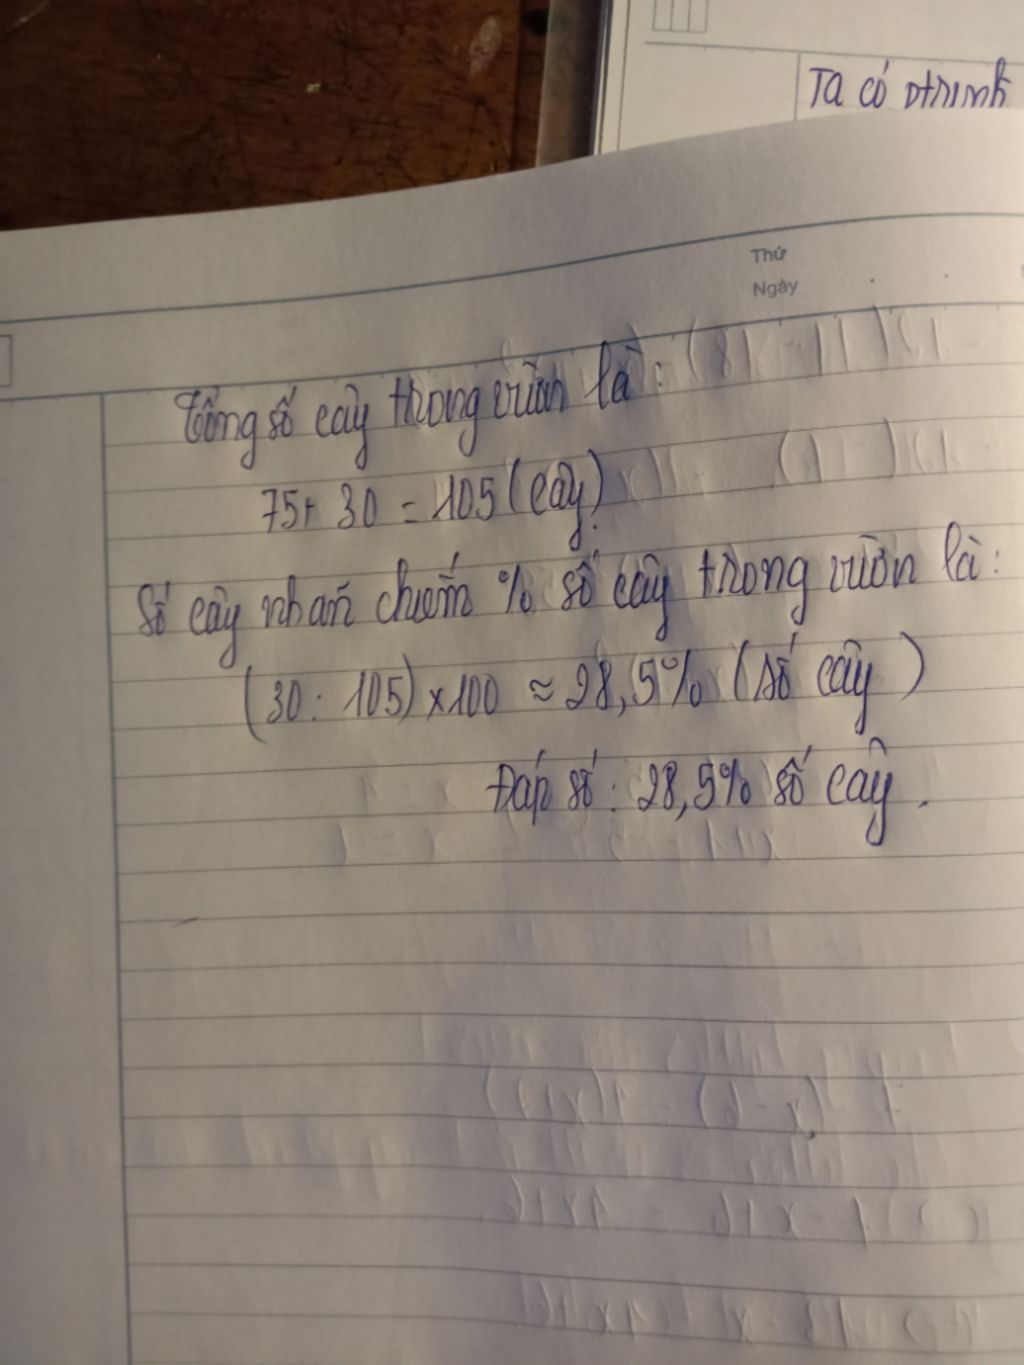 Ta có
Thứ
Ngày
Tổng số cây trong vườn là:
75+ 30 = 105 (cây)
Số cây nhãn chiếm % số cây trong vườn là:
(30 : 105) x 100 ≈ 28,5% (số cây)
Đáp số : 28,5% số cây.